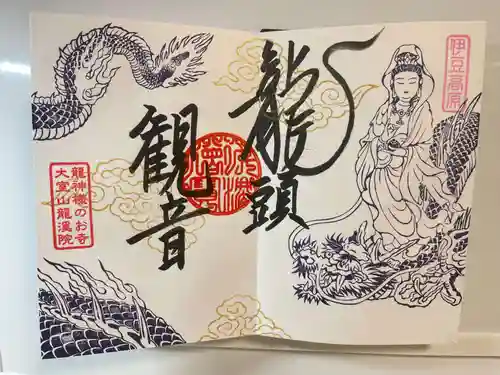 伊豆高原
龍頭
観音
龍神様のお寺
大室山龍渓院